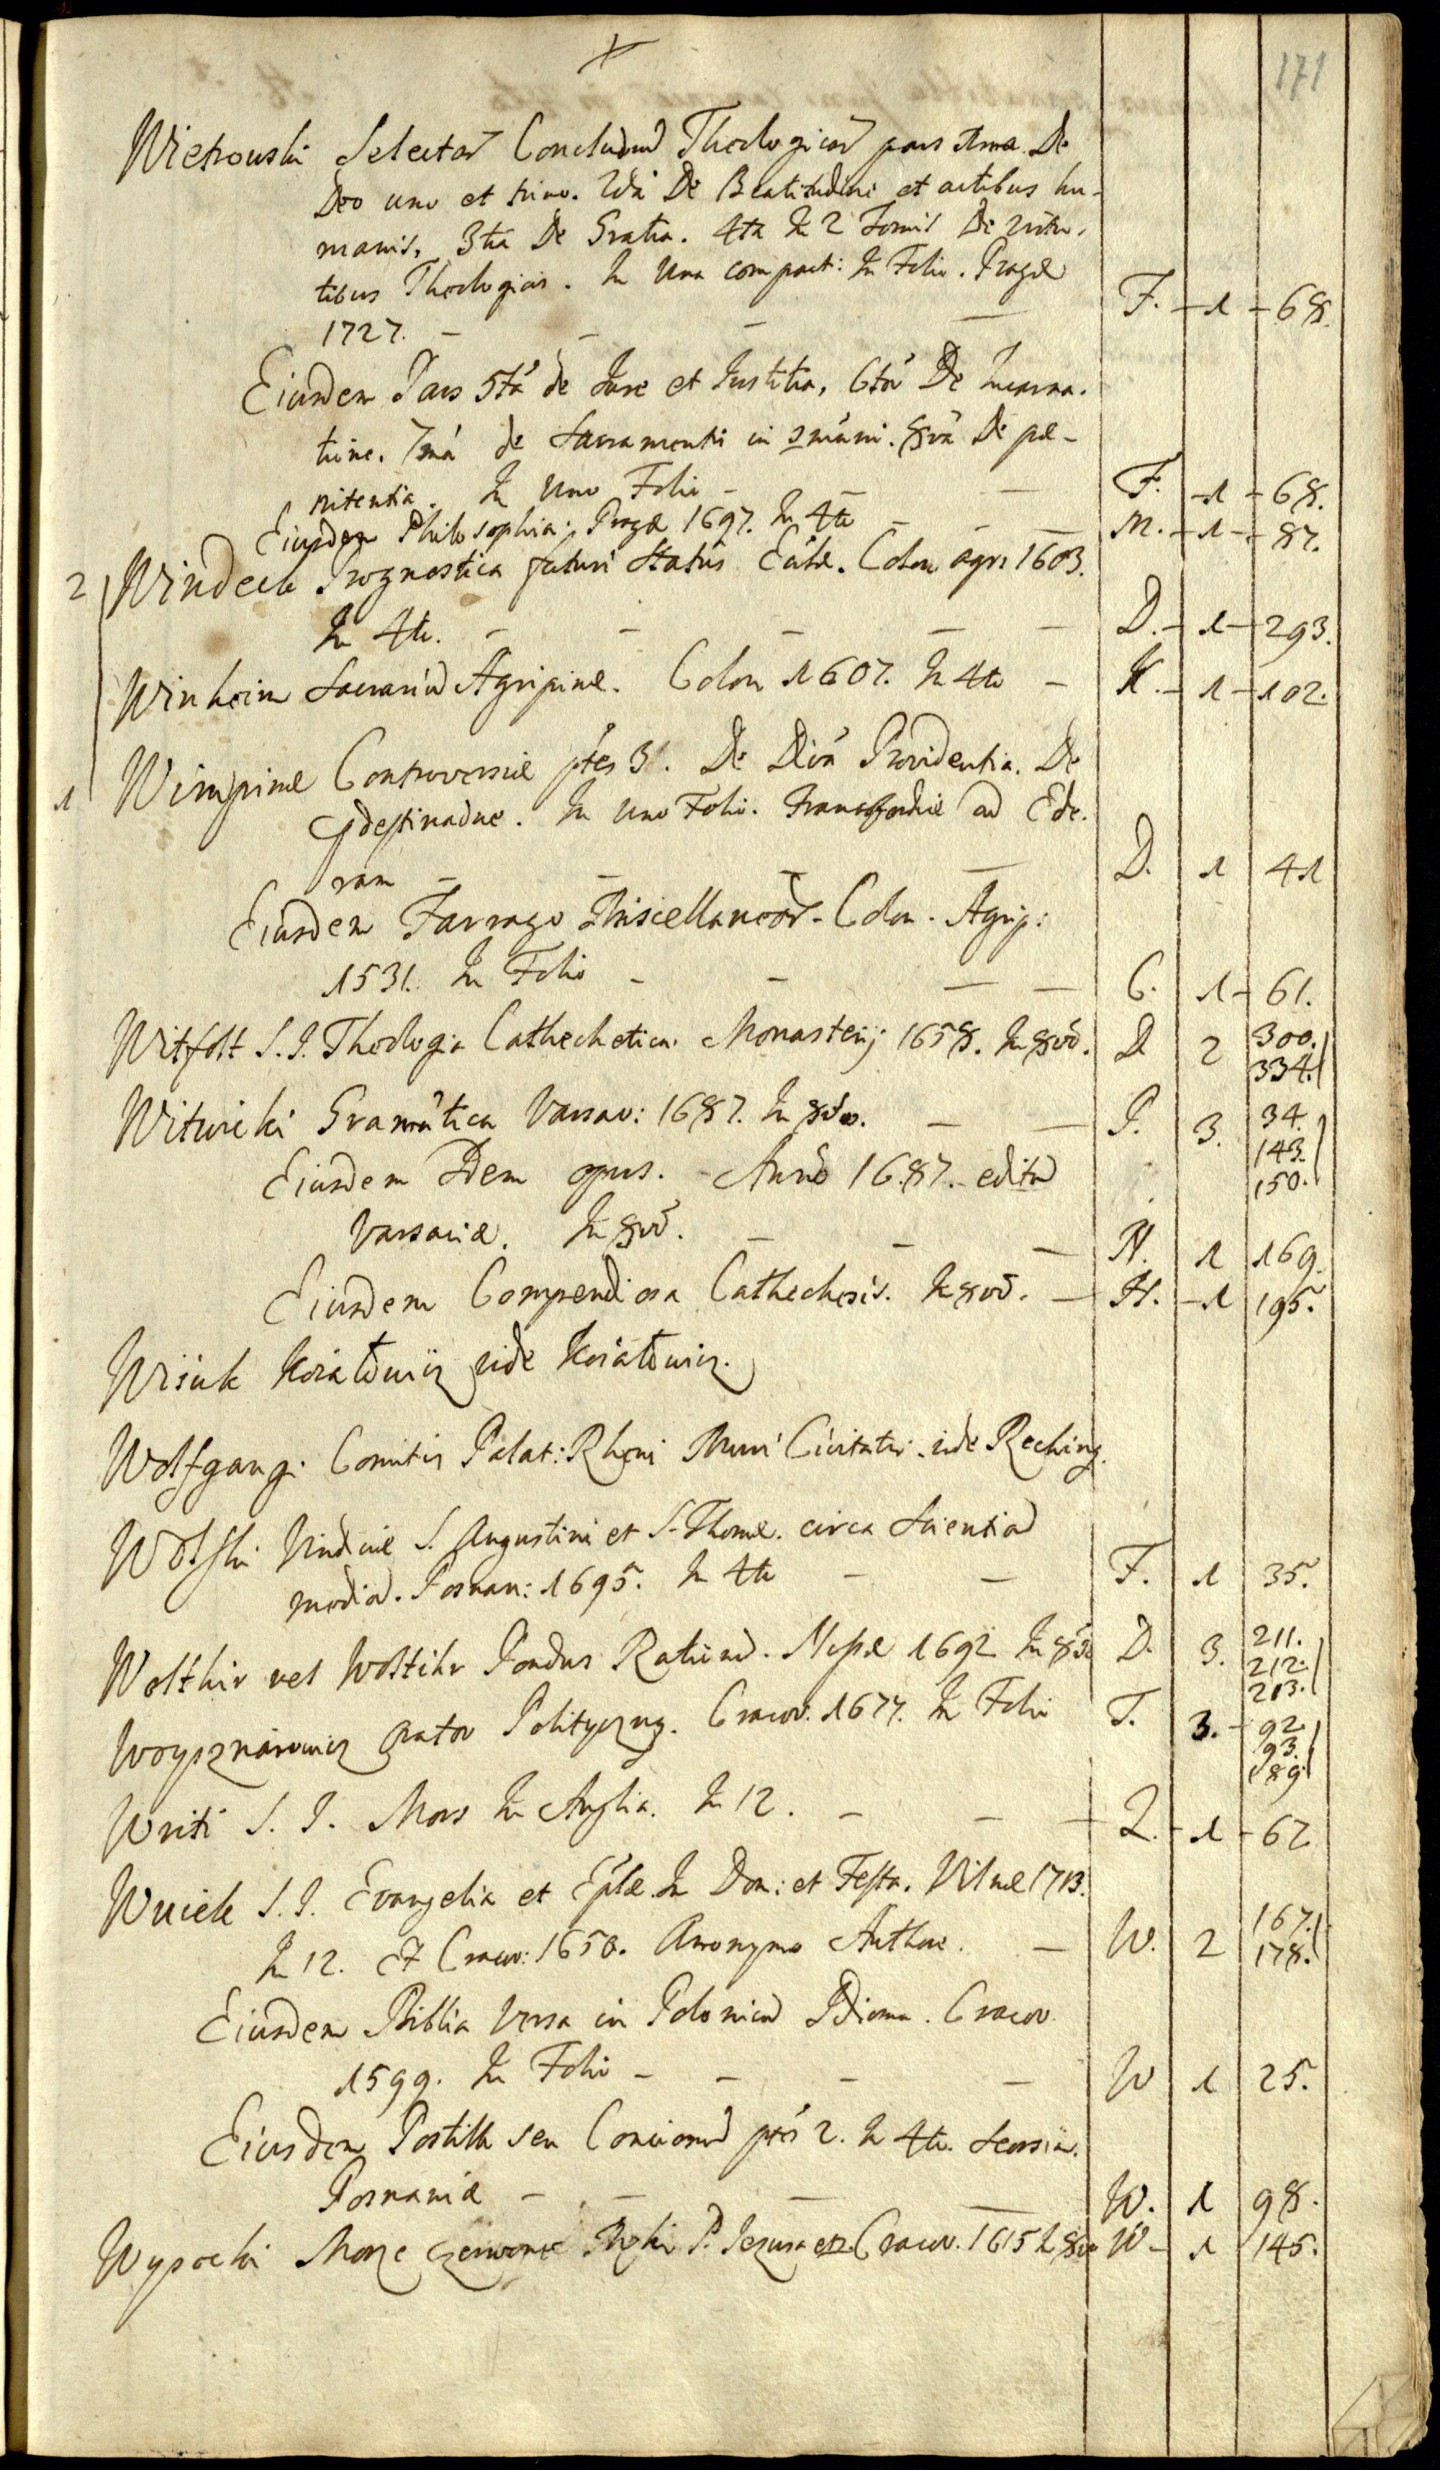 171
Wietrowski Selectar Conclusnu Theologicar pars 1ma. De
Deo uno et trino. 2da De Beatitudine et actibus hu-
manis, 3tia De Gratia. 4ta In 2 Tomis De virtu-
tibus Theologicis. In Uno compact: In Folio. Pragæ
1727. F. 1 68.
Eiusdem Pars 5ta de Jure et Justitia, 6ta De Incarna-
tione. 7ma de Sacramentis in 8va De pæ-
nitentia. In Uno Folio F. 1 68.
Eiusdem Philosophia. Pragæ 1697. In 4to M. 1 87.
2 Windeck Prognostica futuri Status Colon agri 1603.
In 4to. D. 1 293.
Winheim Sacrariu Agripinæ. Colon 1607. In 4to K. 1 102.
1 Wimpinæ Controversiæ ptes 3. De Divа Providentia. De
pdestinaone. In Uno Folio. Francofordiæ ad Ode-
ram D. 1 41
Eiusdem Farrago Miscellaneor. Colon. Agrip:
1531. In Folio C. 1 61.
Witfelt S. J. Theologia Cathechetica. Monasterij 1658. In 8vo. D 2 300. 334.
Witwicki Gramatica Varsav: 1687. In 8vo. P. 3. 34. 143. 150.
Eiusdem Idem opus. Anno 1687. edita
Varsaviæ. In 8vo. N. 1 169.
Eiusdem Compendiosa Cathechesis. In 8vo. H. 1 195.
Wiiuk Koiałowicz vide Koiałowicz.
Wolfgangi Comitis Palat: Rheni Muri Civitatis. vide Reching.
Wolski Vindiciæ S. Augustini et S. Thomæ. circa Scientia
media. Posnan: 1695. In 4to F. 1 35.
Wolthir vel Woltihr Pondus Rationu. Nissæ 1692 In 8vo D. 3. 211. 212. 213.
Woysznarowicz Orator Polityczny. Cracov. 1677. In Folio T. 3. 92 93. 189
Writi S. J. Mors In Anglia. In 12. Q. 1 67
Wuiek S. J. Evangelia et Eplæ In Dom: et Festa. Vilnæ 1713.
In 12. Et Cracov: 1650. Anonymo Authore. W. 2 167. 178.
Eiusdem Biblia Versa in Polonicu Idioma. Cracov.
1599. In Folio W 1 25.
Eiusdem Postilla seu Concionu ptes 2. In 4to. Seorsiu.
Posnaniæ W. 1 98.
Wysocki Morze czerwone P. Jezusa etc. Cracov. 1615 In 8vo W. 1 145.